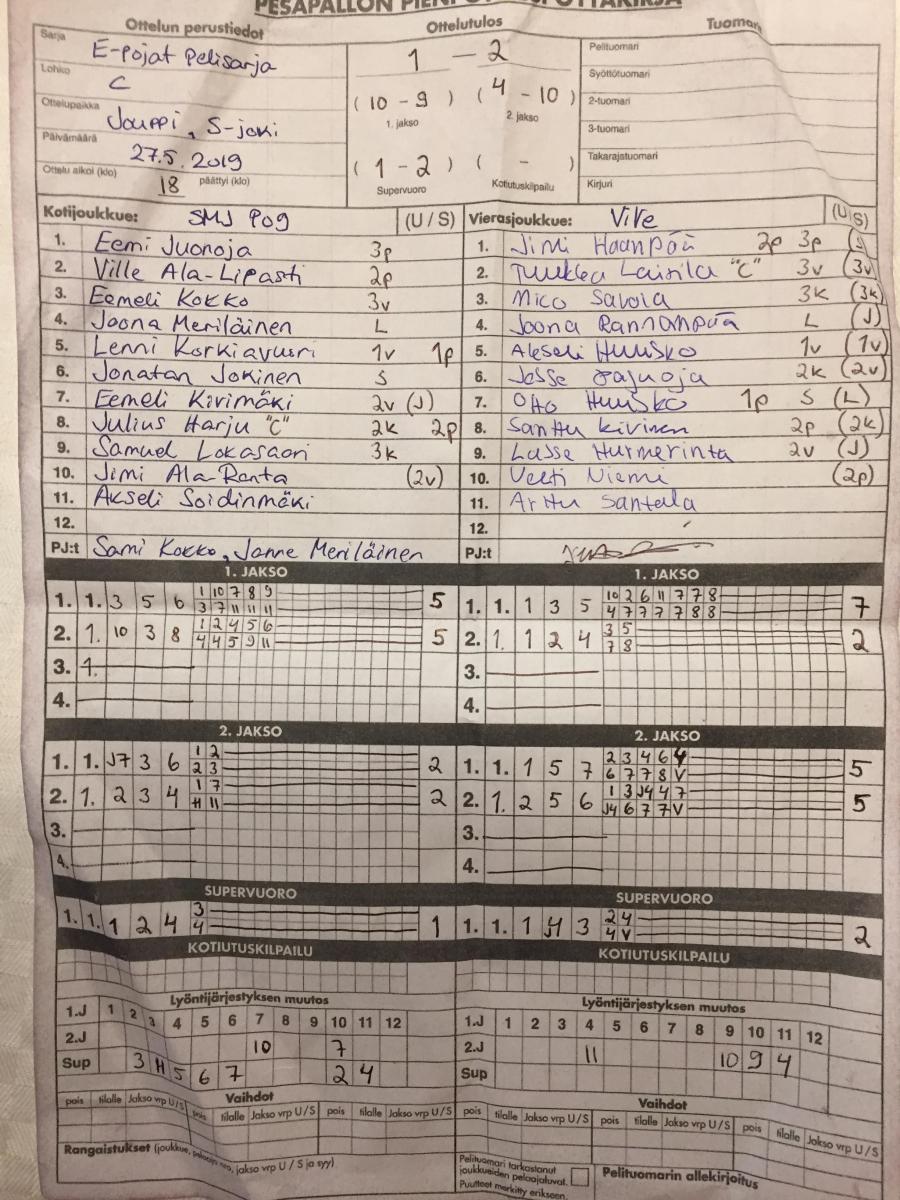 Ottelun perustiedot
Ottelutulos
Sarja E-pojat Pelisarja
Lohko C
Ottelupaikka Jouppi, S-joki
Päivämäärä 27.5.2019
Ottelu alkoi (klo) 18 päättyi (klo)
1 - 2
(10 - 9) (4 - 10)
1. jakso 2. jakso
(1 - 2) ( - )
Supervuoro Kotiutuskilpailu
Pelituomari
Syöttötuomari
2-tuomari
3-tuomari
Takarajatuomari
Kirjuri
Kotijoukkue: SMJ Pog (U/S)
1. Eemi Juonoja 3p
2. Ville Ala-Lipasti 2p
3. Eemeli Kokko 3v
4. Joona Meriläinen L
5. Lenni Korkiavuori 1v 1p
6. Jonatan Jokinen S
7. Eemeli Kivimäki 2v (J)
8. Julius Harju "C" 2k 2p
9. Samuel Lokasaari 3k
10. Jimi Ala-Ranta (2v)
11. Akseli Soidinmäki
12.
PJ:t Sami Kokko, Janne Meriläinen
Vierasjoukkue: ViVe (U/S)
1. Jimi Haanpää 2p 3p
2. Tuukka Laurila "C" 3v (3v)
3. Mico Savola 3k (3k)
4. Joona Rannanpää L (J)
5. Akseli Huusko 1v (1v)
6. Jesse 2k (2v)
7. Otto Huusko 1p S (L)
8. Santtu Kivinen 2p (2k)
9. Lasse Hurmerinta 2v (J)
10. Veeti Niemi (2p)
11. Arttu Santala
12.
PJ:t
1. JAKSO
1. 1. 3 5 6 1 10 7 8 9 5
3 7 11 11 11
2. 1. 10 3 8 1 2 4 5 6 5
4 4 5 9 11
3. 1.
4.
1. JAKSO
1. 1. 1 3 5 10 2 6 11 7 7 8 7
4 7 7 7 7 8 8
2. 1. 1 2 4 3 5 2
7 8
3.
4.
2. JAKSO
1. 1. J7 3 6 1 2 2
2 3
2. 1. 2 3 4 1 7 2
11
3.
4.
2. JAKSO
1. 1. 1 5 7 2 3 4 6 4 5
6 7 7 8 V
2. 1. 2 5 6 1 3 J4 4 7 5
J4 6 7 7 V
3.
4.
SUPERVUORO
1. 1. 1 2 4 3 1
4
SUPERVUORO
1. 1. 1 3 2 4 2
4 V
KOTIUTUSKILPAILU
KOTIUTUSKILPAILU
Lyöntijärjestyksen muutos
1.J 1 2 3 4 5 6 7 8 9 10 11 12
2.J 10 7
Sup 3 5 6 7 2 4
Lyöntijärjestyksen muutos
1.J 1 2 3 4 5 6 7 8 9 10 11 12
2.J 11 10 9 4
Sup
Vaihdot
pois tilalle Jakso vrp U/S pois tilalle Jakso vrp U/S pois tilalle Jakso vrp U/S
Vaihdot
pois tilalle Jakso vrp U/S pois tilalle Jakso vrp U/S pois tilalle Jakso vrp U/S
Rangaistukset (joukkue, pelaajan nro, jakso vrp U / S ja syy)
Pelituomari tarkastanut
joukkueiden pelaajaluvat.
Puutteet merkitty erikseen.
Pelituomarin allekirjoitus